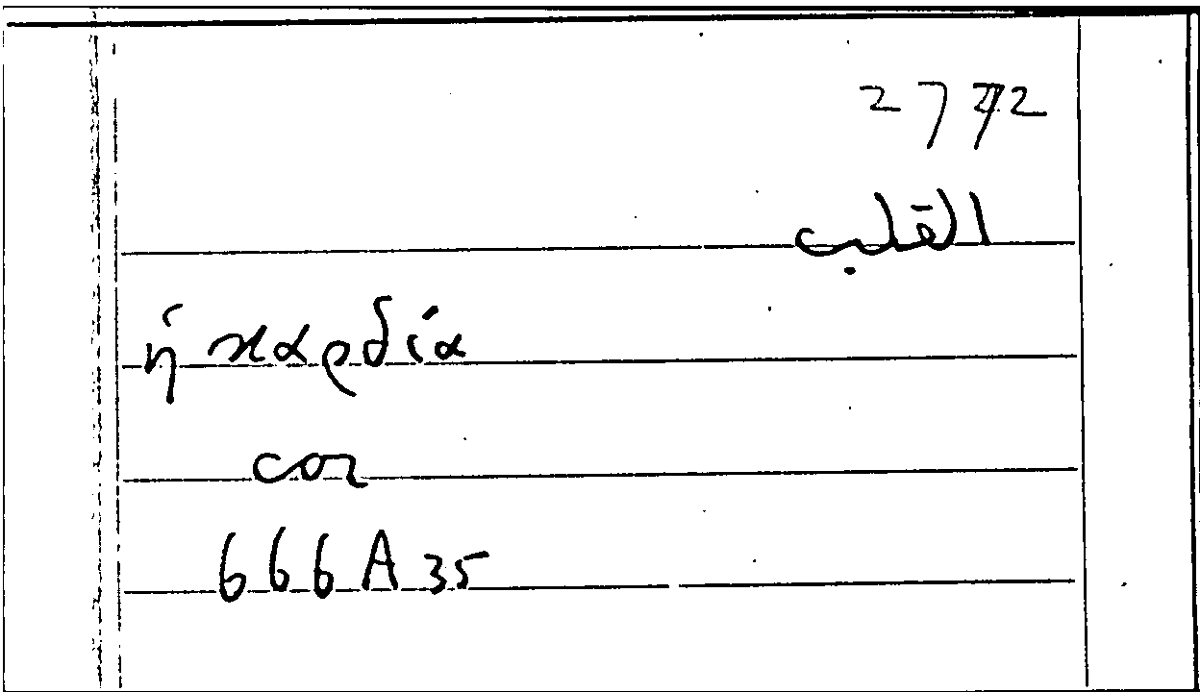 القلب
ἡ καρδία
cor
666A35